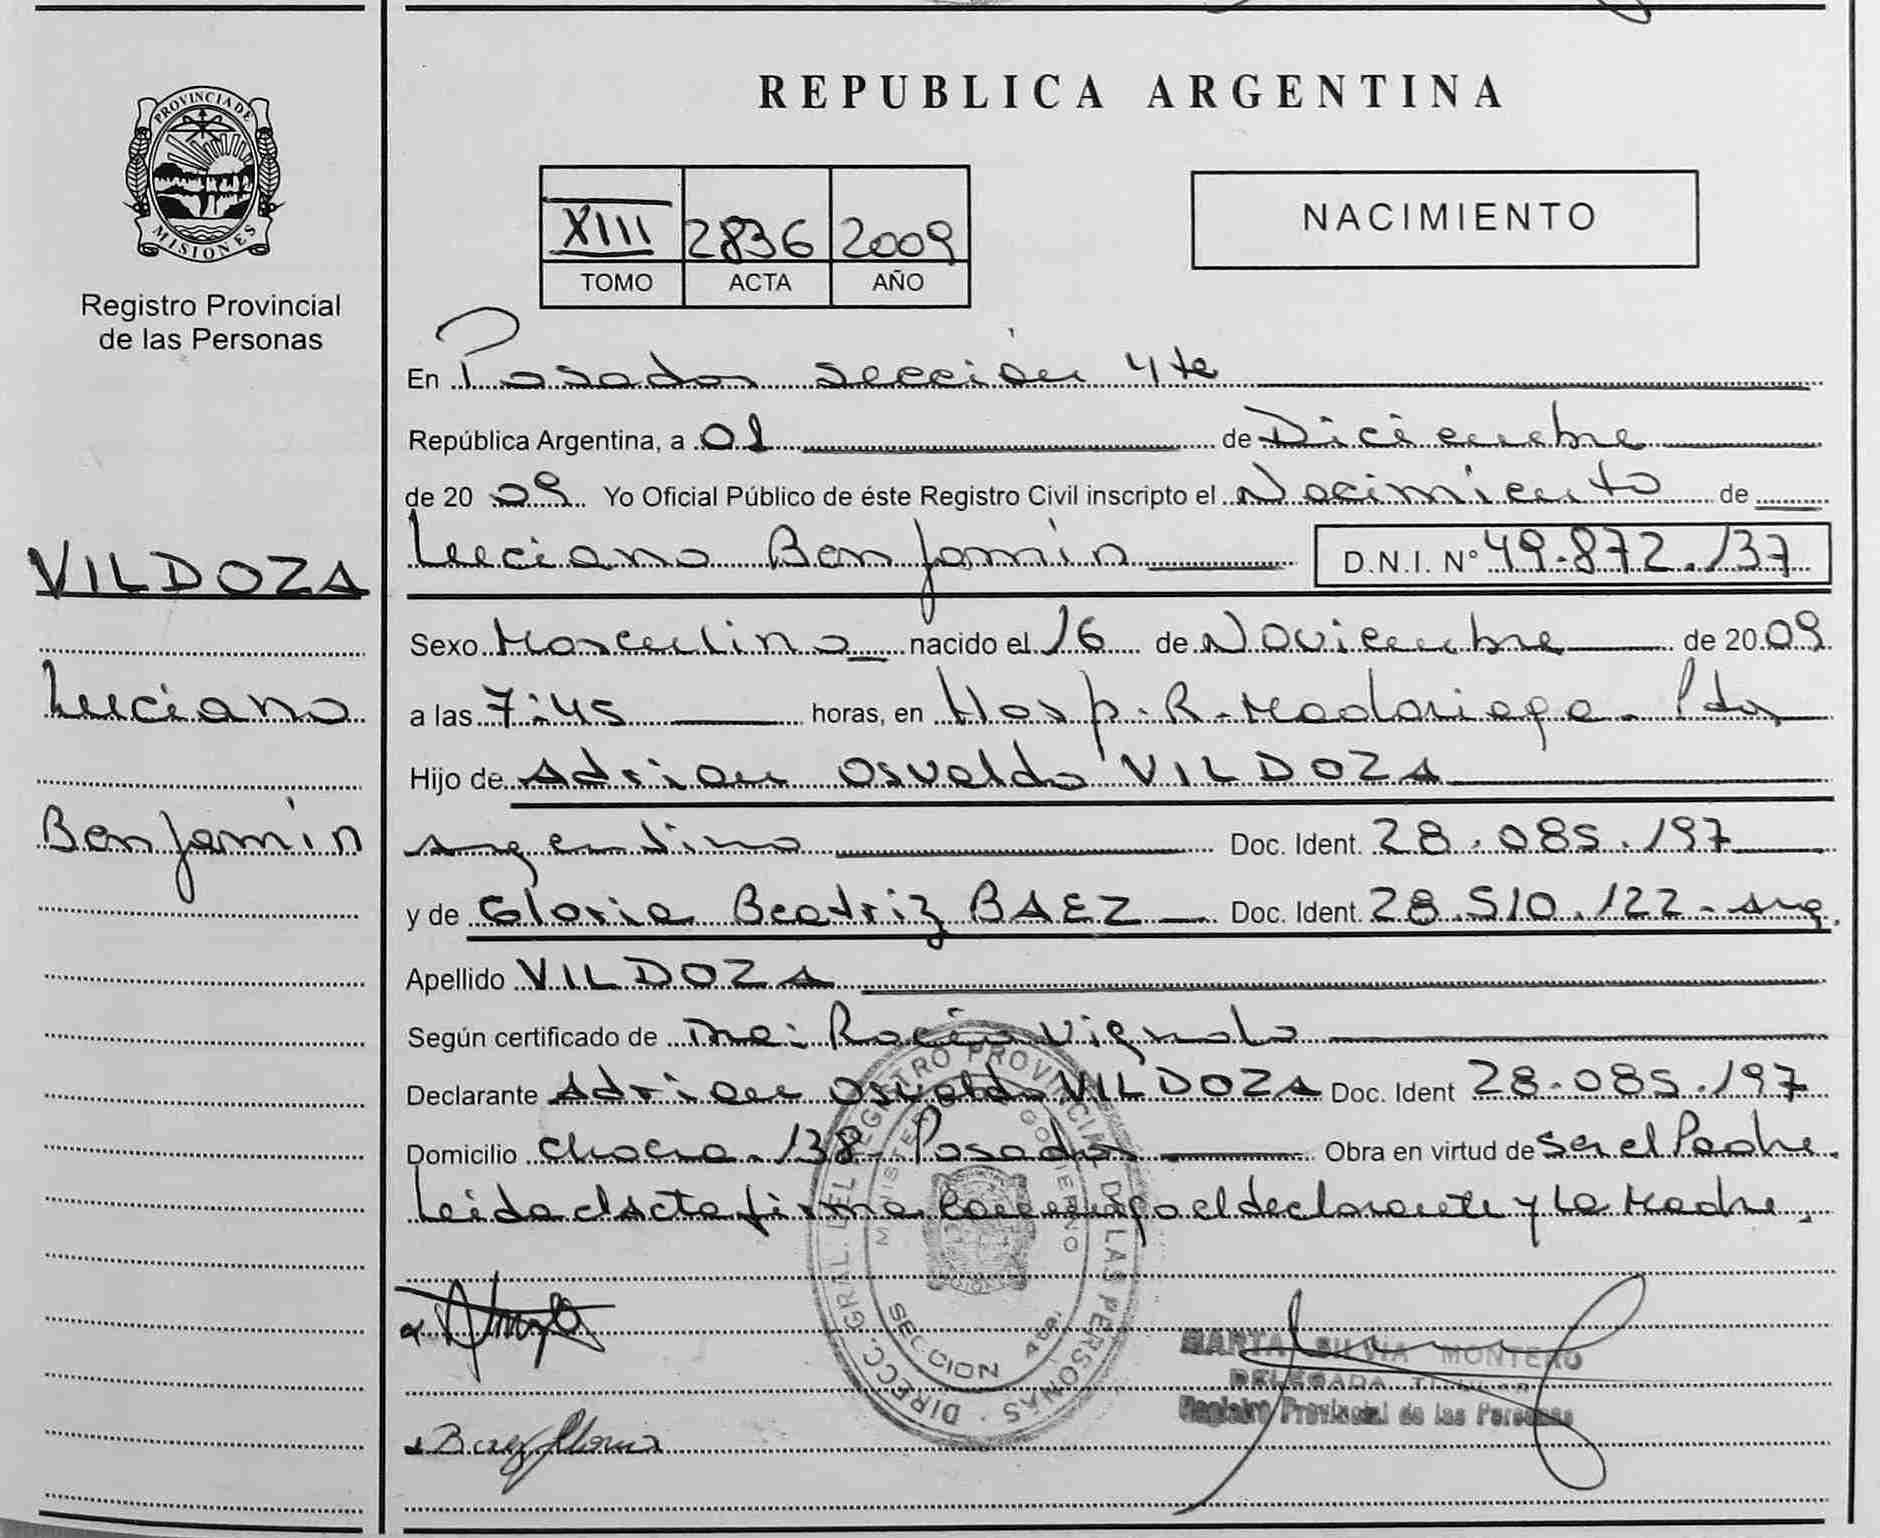 PROVINCIA DE
MISIONES
Registro Provincial
de las Personas
VILDOZA
Luciano
Benjamín
REPUBLICA ARGENTINA
XIII 2836 2009
TOMO ACTA AÑO
NACIMIENTO
En Posadas sección 4ta
República Argentina, a 01 de Diciembre
de 2009 Yo Oficial Público de éste Registro Civil inscripto el Nacimiento de
Luciano Benjamín D.N.I. N° 49.872.137
Sexo Masculino nacido el 16 de Noviembre de 2009
a las 7:45 horas, en Hosp. R. Madariaga - Pdas
Hijo de Adrian Osvaldo VILDOZA
argentino Doc. Ident. 28.085.197
y de Gloria Beatriz BAEZ Doc. Ident. 28.510.122 - arg.
Apellido VILDOZA
Según certificado de Dra: Rocío Vignolo
Declarante Adrian Osvaldo VILDOZA Doc. Ident 28.085.197
Domicilio Chacra 138 - Posadas Obra en virtud de ser el Padre.
Leida el Acta firma conmigo el declarante y la Madre.
DIRECC. GRAL. DEL REGISTRO PROVINCIAL DE LAS PERSONAS
MINISTERIO GOBIERNO
SECCION 4ta.
MARTA SILVIA MONTERO
DELEGADA TITULAR
Registro Provincial de las Personas
Baez Gloria